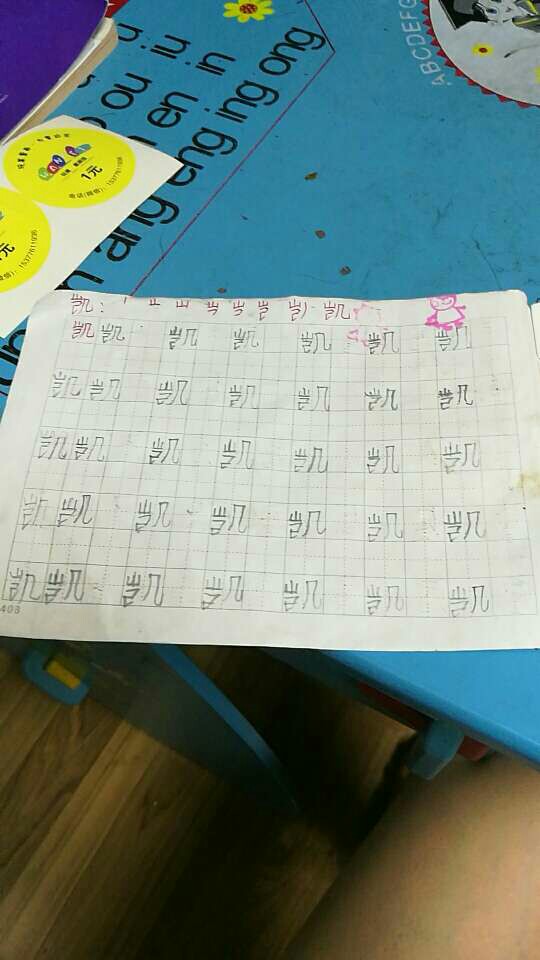 ABCDEFG
ou iu
en in
ang eng ing ong
1元
电话(微信): 15377611936
元
15377611936
凯: 凯
凯 凯 凯 凯 凯 凯 凯
凯 凯 凯 凯 凯 凯 凯
凯 凯 凯 凯 凯 凯 凯
凯 凯 凯 凯 凯 凯 凯
凯 凯 凯 凯 凯 凯 凯
408